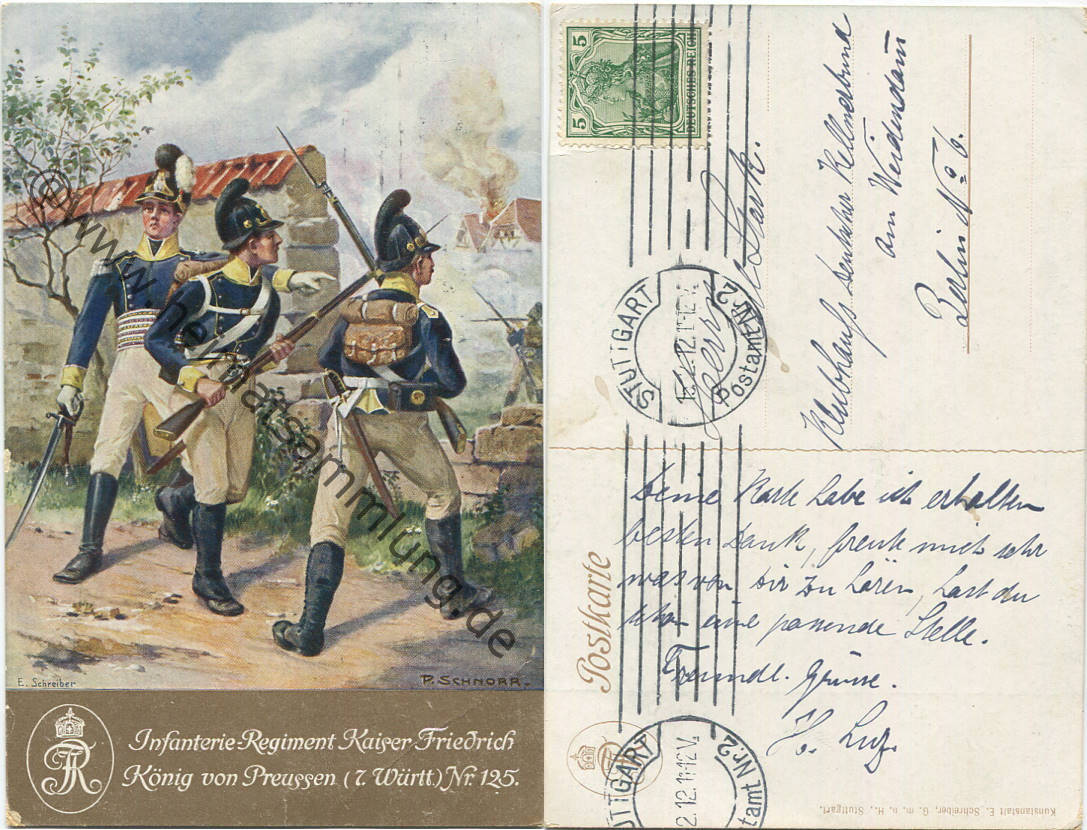 © www.heimatsammlung.de
E. Schreiber
P. SCHNORR.
Infanterie-Regiment Kaiser Friedrich
König von Preussen (7. Württ.) Nr. 125.
FR
5 5
DEUTSCHES REICH
STUTTGART
Postamt Nr. 2
12.11-12 V.
Herrn
Klubhaufs Deutscher Kellnerbund
am Weidendamm
Berlin No 6.
Postkarte
Deine Karte habe ich erhalten
besten Dank, freut mich sehr
was von Dir zu hören, hast du
schon eine passende Stelle.
Freundl. Grüsse.
H. Luz.
STUTTGART
Postamt Nr. 2
2.12.11-12 V.
Kunstanstalt E. Schreiber, G. m. b. H., Stuttgart.